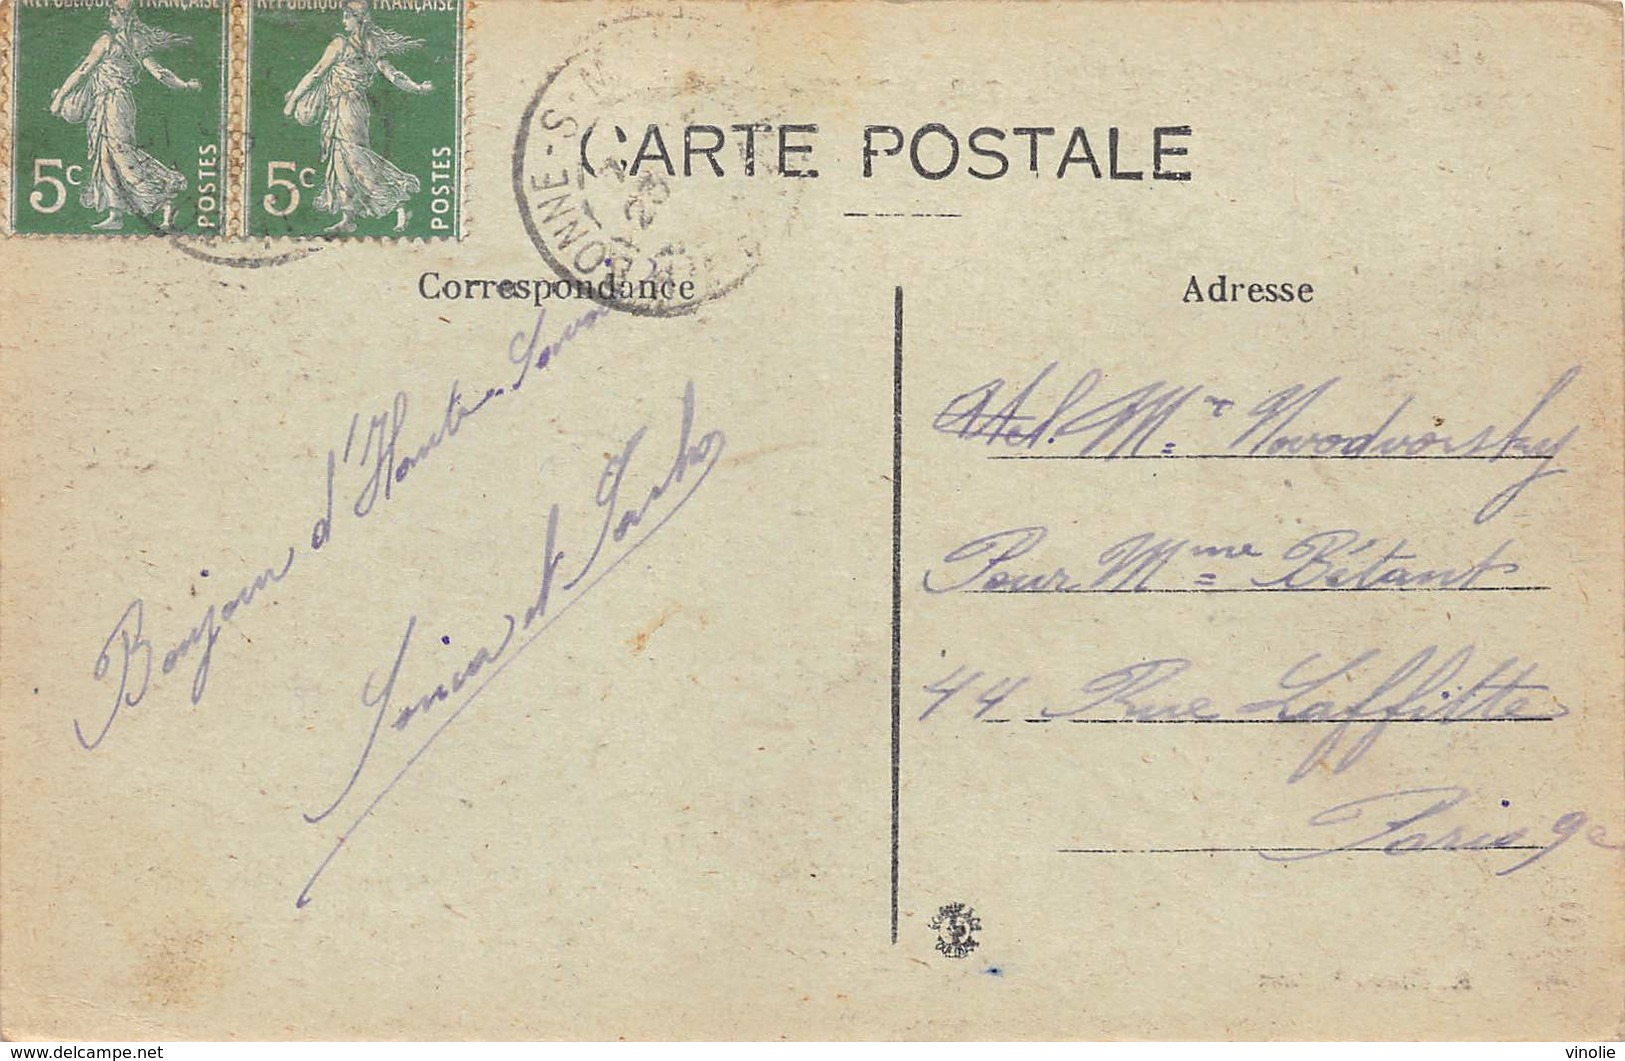 RÉPUBLIQUE FRANÇAISE
RÉPUBLIQUE FRANÇAISE
5c
POSTES
5c
POSTES
ONNE-S-M
23
CARTE POSTALE
Correspondance
Adresse
Bonjour d'Haute-Savoie
Sonia et Sacha
Atel. Mr Novodvorsky
Pour Mme Bétant
44 Rue Laffitte
Paris 9e
www.delcampe.net
vinolie